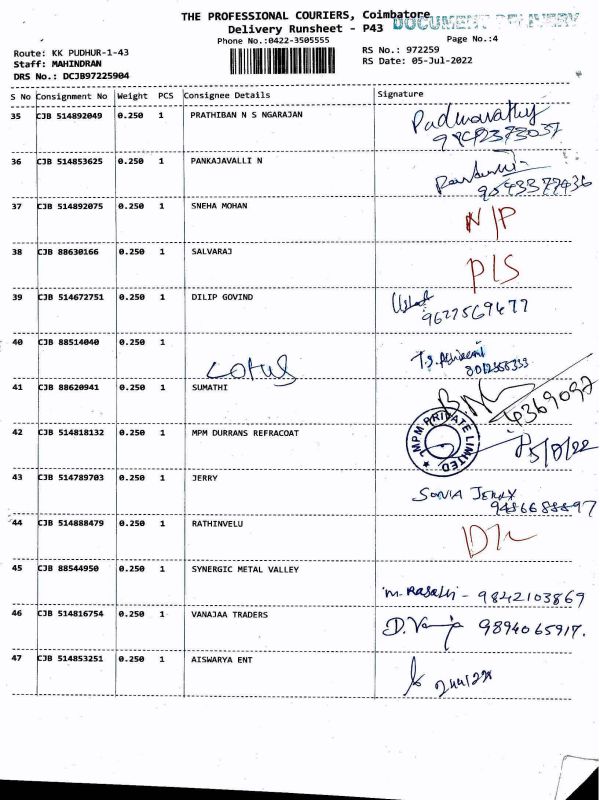 THE PROFESSIONAL COURIERS, Coimbatore
DOCUMENT DELIVERY
Delivery Runsheet - P43
Phone No.:0422-3505555
Page No.:4
Route: KK PUDHUR-1-43
RS No.: 972259
Staff: MAHINDRAN
RS Date: 05-Jul-2022
DRS No.: DCJB97225904
S No Consignment No Weight PCS Consignee Details Signature
35 CJB 514892049 0.250 1 PRATHIBAN N S NGARAJAN Padmavathy
9842373037
36 CJB 514853625 0.250 1 PANKAJAVALLI N
9543377436
37 CJB 514892075 0.250 1 SNEHA MOHAN N/P
38 CJB 88630166 0.250 1 SALVARAJ P/S
39 CJB 514672751 0.250 1 DILIP GOVIND
9677569477
40 CJB 88514040 0.250 1
Lotus
41 CJB 88620941 0.250 1 SUMATHI
42 CJB 514818132 0.250 1 MPM DURRANS REFRACOAT MPM PRIVATE LIMITED
43 CJB 514789703 0.250 1 JERRY SONIA JERRY
9486688897
44 CJB 514888479 0.250 1 RATHINVELU D/L
45 CJB 88544950 0.250 1 SYNERGIC METAL VALLEY M. Rasathi - 9842103869
46 CJB 514816754 0.250 1 VANAJAA TRADERS 9894065917.
47 CJB 514853251 0.250 1 AISWARYA ENT